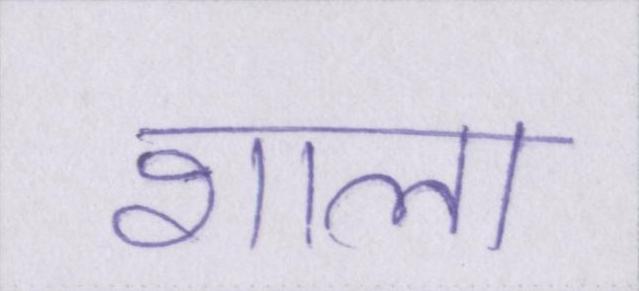 शाला